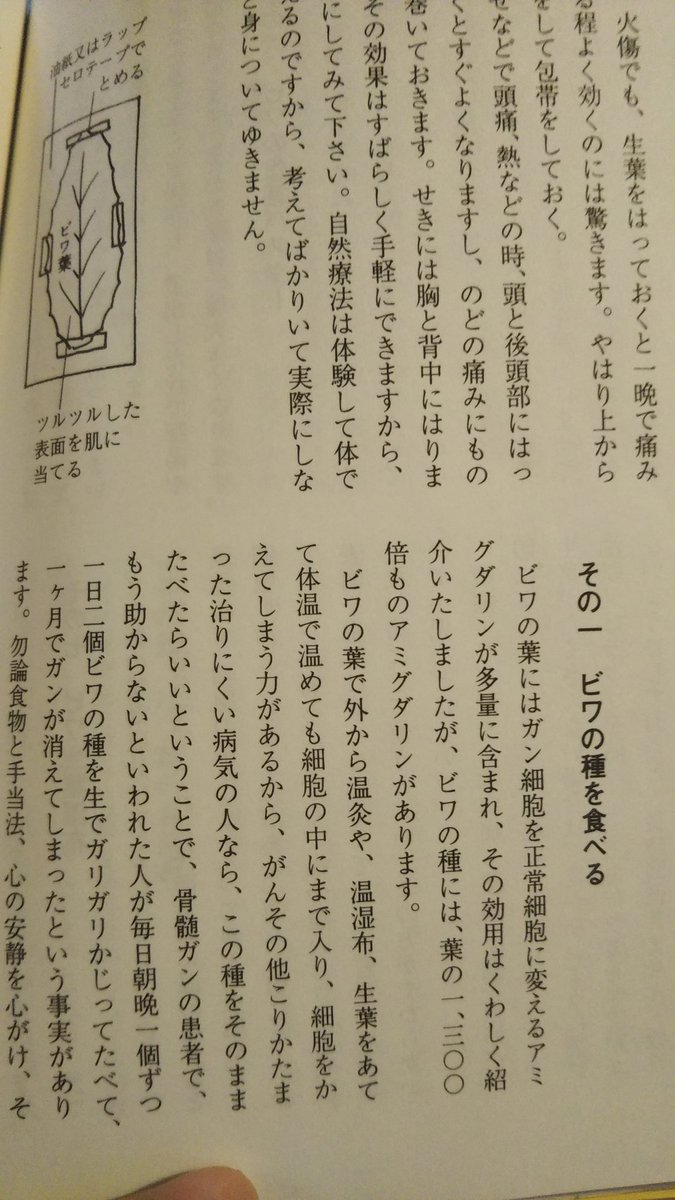 火傷でも、生葉をはっておくと一晩で痛み
る程よく効くのには驚きます。やはり上から
をして包帯をしておく。
ぜなどで頭痛、熱などの時、頭と後頭部にはっ
くとすぐよくなりますし、のどの痛みにもの
巻いておきます。せきには胸と背中にはりま
その効果はすばらしく手軽にできますから、
にしてみて下さい。自然療法は体験して体で
えるのですから、考えてばかりいて実際にしな
と身についてゆきません。
油紙又はラップ
セロテープで
とめる
ビワ葉
ツルツルした
表面を肌に
当てる
その一 ビワの種を食べる
ビワの葉にはガン細胞を正常細胞に変えるアミ
グダリンが多量に含まれ、その効用はくわしく紹
介いたしましたが、ビワの種には、葉の一、三〇〇
倍ものアミグダリンがあります。
ビワの葉で外から温灸や、温湿布、生葉をあて
て体温で温めても細胞の中にまで入り、細胞をか
えてしまう力があるから、がんその他こりかたま
った治りにくい病気の人なら、この種をそのまま
たべたらいいということで、骨髄ガンの患者で、
もう助からないといわれた人が毎日朝晩一個ずつ
一日二個ビワの種を生でガリガリかじってたべて、
一ヶ月でガンが消えてしまったという事実があり
ます。勿論食物と手当法、心の安静を心がけ、そ